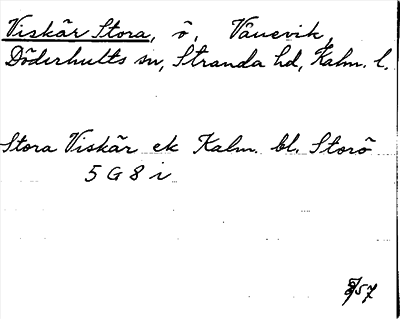 Viskär Stora, ö, Vånevik,
Döderhults sn, Stranda hd, Kalm. l.
Stora Viskär ek Kalm. bl. Storö
5 G 8 i
57